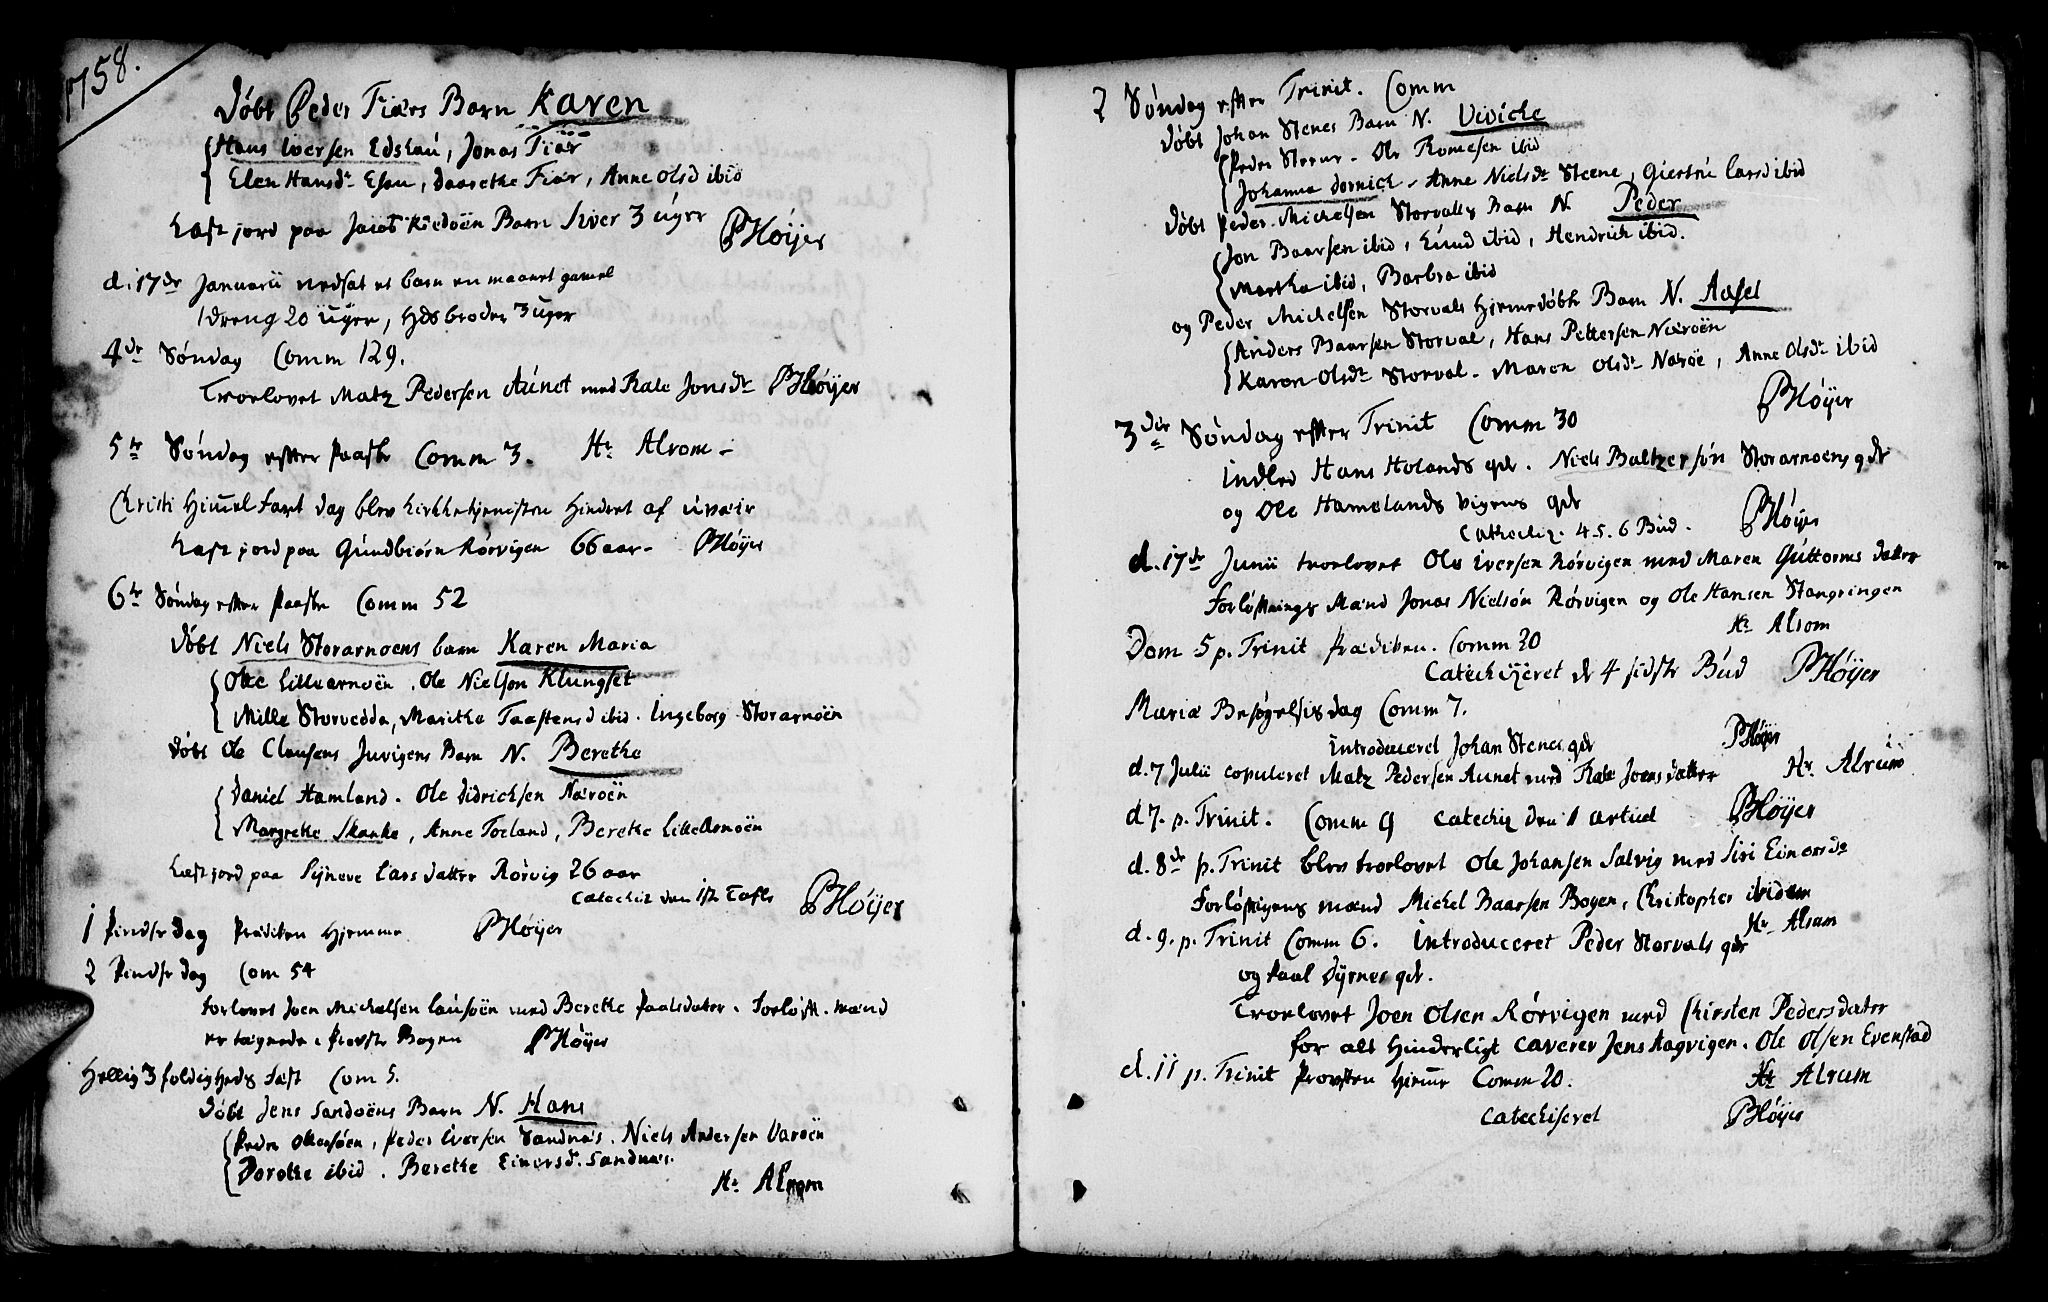 1758.
Døbt Peder Fiærs Barn Karen
Hans Iversen Edshaú, Jonas Fiær
Elen Hansdr Esøu, Daarethe Fiær, Anne Olsd ibid
Kast jord paa Jacob Kiedøen Barn Siver 3 úger PHøÿer
d. 17de Januarii nedsat et barn en maanet gamel
1 dreng 20 úger, Hds broder 3 uger
4de Søndag Comm 129.
Troelovet Matz Pedersen Aúnet med Kale Jonsdr PHøÿer
5te Søndag efter Paaske Comm 3. Hr Alrom -
Christi Himel fart dag blev kirketjenisten hindret af úvæir
Kast jord paa Gúndbiørn Rørvigen 66 aar - PHøÿer
6te Søndag efter Paaske Comm 52
Døbt Niels Storarnoens barn Karen Maria
Ole Lillearnøen. Ole Nielsøn Klungset
Mille Storvedda, Marithe Taastensd ibid. Ingeborg Storarnøen
Døbt Ole Clausens Juvigens Barn N. Berethe
Daniel Hamland. Ole Didrichsen Nærøen
Margrethe Skanke, Anne Foeland, Berethe LilleArnøen
Kast jord paa Sÿneve Lars datter Rørvig 26 aar
Catechiz den 1ste Tafle PHøÿer
1 Pindse Dag Prædiken Hjemme PHøÿer
2 Pindse dag Com 54
Torlovet Joen Michelsen Laúsøen med Berethe Paalsdater. Forløft. mænd
er tægnede i Provste Bogen PHøÿer
Hellig 3 foldigheds Fæst Com 5.
Døbt Jens Sandøens Barn N. Hans
Peder Ottersøen, Peder Iversen Sandnæs. Niels Andersen Varøen
Dorothe ibid. Berethe Einersd. Sandnæs.
Hr Alrom
2 Søndag efter Trinit. Comm
Døbt Johan Stenes Barn N. Vivicke
Peder Steene. Ole Romesen ibid
Johanna Dornich. Anne Nielsdr Steene, Giertrú Larsd ibid
Døbt Peder Michelsen Storvalls Barn N. Peder
Jon Baarsen ibid, Eúnd ibid, Hendrich ibid.
Martha ibid, Barbra ibid
og Peder Michelsen Storvals Hjemedøbte Barn N. Aasel
Anders Baarsen Storval, Hans Pettersen Nærøen
Karen Olsdr Storval. Maren Olsdr Nærøe, Anne Olsdr ibid
PHøÿer
3die Søndag efter Trinit Comm 30
Indled Hans Holands qde. Niels Baltzersøn Storarnoens qde
og Ole Hamelands Vigens qde
Catechiz. 4. 5. 6 Bud. PHøÿer
d. 17de Junii troelovet Ole Iversen Rørvigen med Maren Gúttorms datter
Forløftnings Mænd Jonas Nielsøn Rørvigen og Ole Hansen Stangringen
Hr Alrom
Dom 5 p. Trinit Prædiken. Comm 20
Catechizeret de 4 sidste Búd PHøÿer
Mariæ Besøgelsis dag Comm 7.
Introduceret Johan Stenes qde PHøÿer
d. 7 Julii copuleret Matz Pedersen Aunet med Kale Joensdatter Hr Alrum
d 7. p. Trinit. Comm 9 Catechiz den 1 Articul PHøÿer
d. 8de p. Trinit blev troelovet Ole Johansen Salvig med Siri Einersdr
Forløftigens mænd Michel Baarsen Bogen, Christopher ibidem
Hr Alrum
d. 9. p. Trinit Comm 6. Introduceret Peder Storvals qde
og Paal Dÿrnes qde.
Troelovet Joen Olsen Rørvigen med Chirsten Pedersdater
for alt Hinderligt caverer Jens Aagvigen. Ole Olsen Evenstad
Hr Alrum
d. 11 p. Trinit Provsten Hjeme Comm 20.
Catechiseret PHøÿer